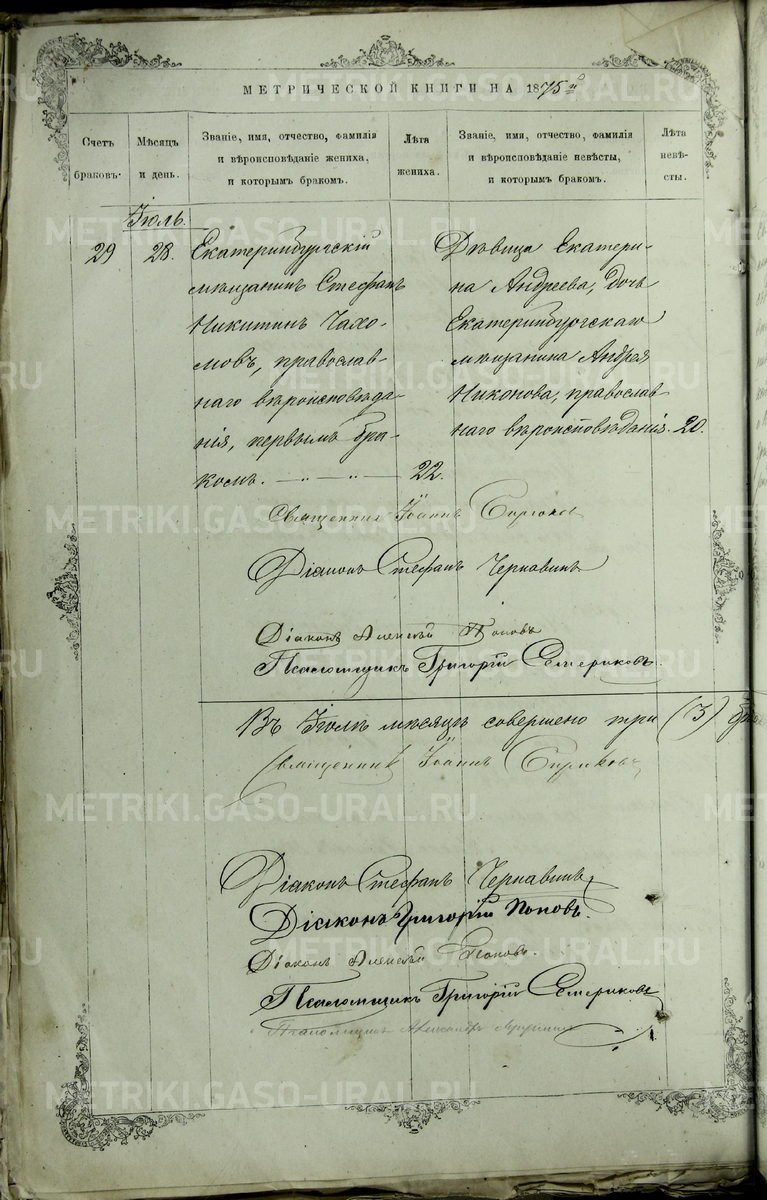 МЕТРИЧЕСКОЙ КНИГИ НА 1875й
Счетъ браковъ.
Мѣсяцъ и день.
Званіе, имя, отчество, фамилія и вѣроисповѣданіе жениха, и которымъ бракомъ.
Лѣта жениха.
Званіе, имя, отчество, фамилія и вѣроисповѣданіе невѣсты, и которымъ бракомъ.
Лѣта невѣсты.
Іюль.
29
28.
Екатеринбургскій
мѣщанинъ Стефанъ
Никитинъ Чахо-
мовъ, православ-
наго вѣроисповѣда-
нія, первымъ бра-
комъ. 22.
Дѣвица Екатери-
на Андреева, дочь
Екатеринбургскаго
мѣщанина Андрея
Никонова, православ-
наго вѣроисповѣданія. 20.
Священникъ Іоаннъ
Діаконъ Стефанъ Чернавинъ
Діаконъ Алексѣй Поповъ
Псаломщикъ Григорій Семериковъ.
Въ Іюлѣ мѣсяцѣ совершено три (3)
Священникъ Іоаннъ
Діаконъ Стефанъ Чернавинъ
Діаконъ Григорій Поповъ.
Діаконъ Алексѣй Поповъ.
Псаломщикъ Григорій Семериковъ
Псаломщикъ Александръ
METRIKI.GASO-URAL.RU